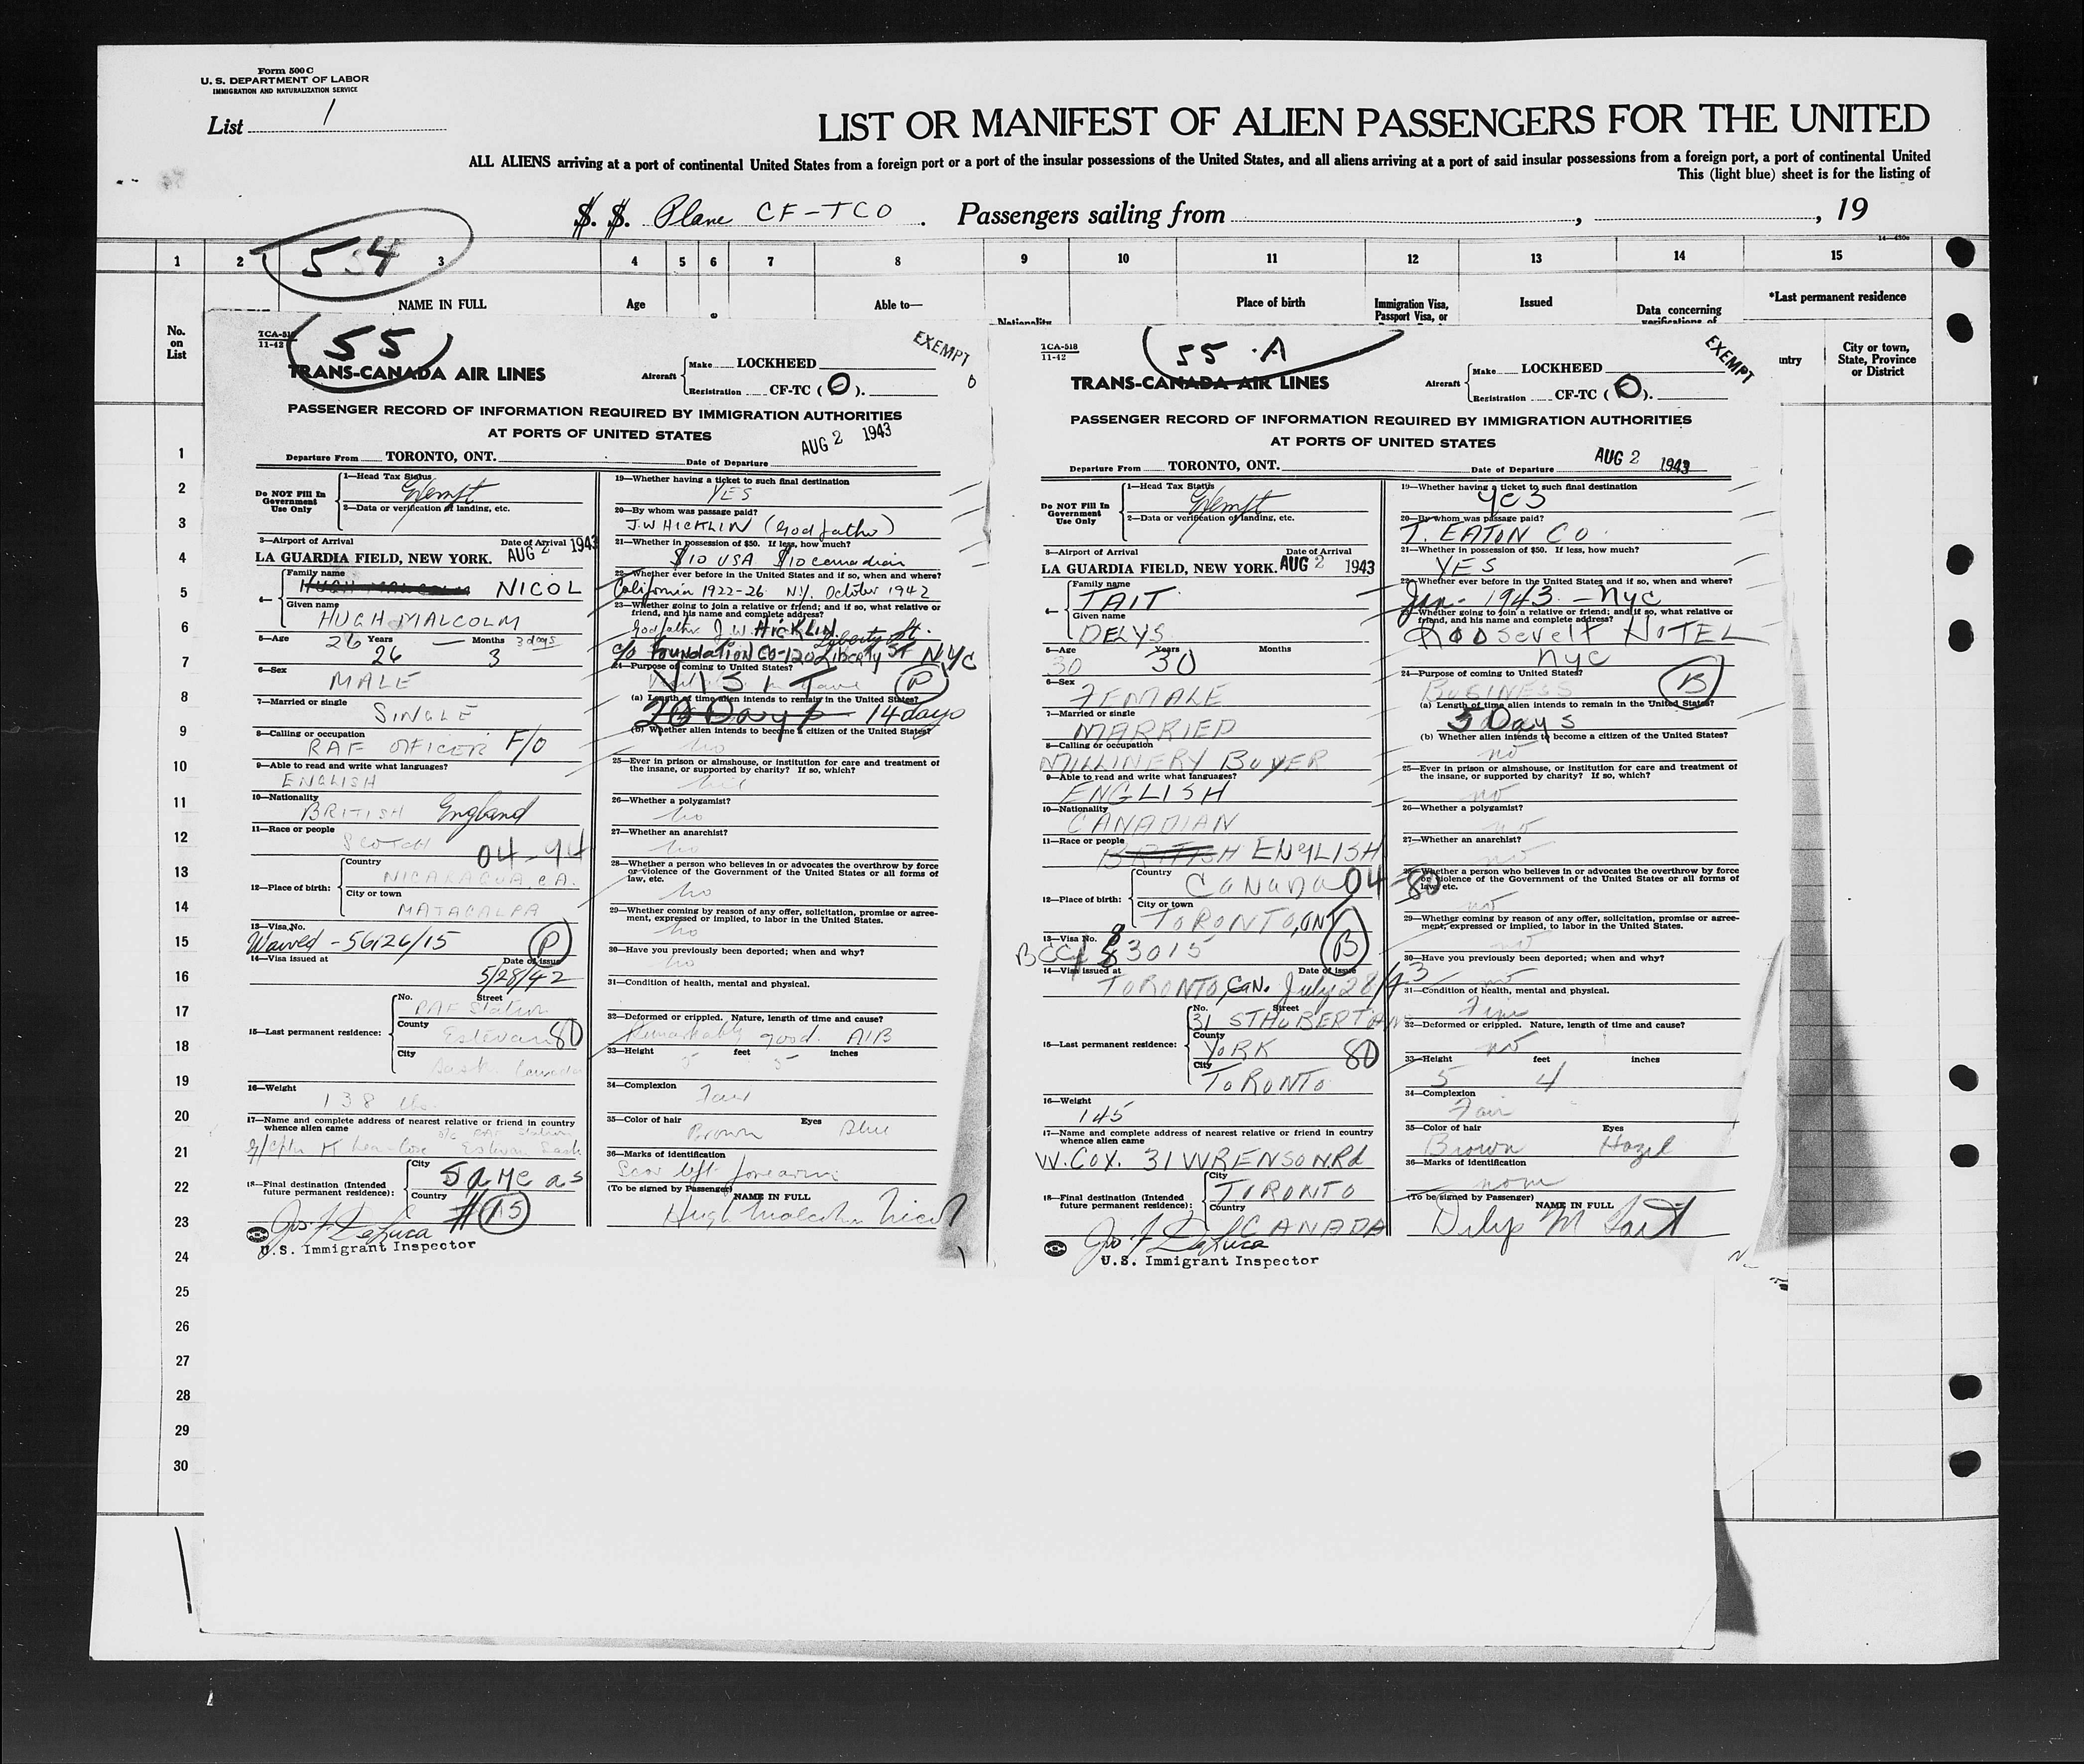 Form 500 C
U. S. DEPARTMENT OF LABOR
IMMIGRATION AND NATURALIZATION SERVICE
List 1
LIST OR MANIFEST OF ALIEN PASSENGERS FOR THE UNITED
ALL ALIENS arriving at a port of continental United States from a foreign port or a port of the insular possessions of the United States, and all aliens arriving at a port of said insular possessions from a foreign port, a port of continental United
This (light blue) sheet is for the listing of
S. S. Plane CF-TCO . Passengers sailing from , , 19
54
1 2 3 4 5 6 7 8 9 10 11 12 13 14 15
No. on List
NAME IN FULL
Age
Able to—
Nationality
Place of birth
Immigration Visa, Passport Visa, or
Issued
Data concerning verifications of
*Last permanent residence
City or town, State, Province or District
1
2
3
4
5
6
7
8
9
10
11
12
13
14
15
16
17
18
19
20
21
22
23
24
25
26
27
28
29
30
TCA-518
11-42
55
EXEMPT
TRANS-CANADA AIR LINES
Aircraft Make LOCKHEED
Registration CF-TC ( O ).
PASSENGER RECORD OF INFORMATION REQUIRED BY IMMIGRATION AUTHORITIES
AT PORTS OF UNITED STATES
AUG 2 1943
Departure From TORONTO, ONT. Date of Departure
Do NOT Fill In Government Use Only
1—Head Tax Status
Exempt
2—Data or verification of landing, etc.
3—Airport of Arrival Date of Arrival
LA GUARDIA FIELD, NEW YORK. AUG 2 1943
4— Family name
HUGH MALCOLM NICOL
Given name
HUGH MALCOLM
5—Age 26 Years — Months 3 days
26 3
6—Sex
MALE
7—Married or single
SINGLE
8—Calling or occupation
RAF OFFICER F/O
9—Able to read and write what languages?
ENGLISH
10—Nationality
BRITISH England
11—Race or people
SCOTCH
04-94
12—Place of birth: Country
NICARAGUA, C.A.
City or town
MATAGALPA
13—Visa No.
Waived - 56126/15 P
14—Visa issued at Date of issue
5/28/42
15—Last permanent residence: No. Street
RAF Station
County
Estevan 80
City
Sask. Canada
16—Weight
138 lbs.
17—Name and complete address of nearest relative or friend in country whence alien came
RAF Station
Estevan Sask
18—Final destination (Intended future permanent residence): City
Same as
Country
#15
Jos F DeLuca
U.S. Immigrant Inspector
19—Whether having a ticket to such final destination
YES
20—By whom was passage paid?
J.W HICKLIN (Godfather)
21—Whether in possession of $50. If less, how much?
$10 USA $10 canadian
22—Whether ever before in the United States and if so, when and where?
California 1922-26 N.Y. October 1942
23—Whether going to join a relative or friend; and if so, what relative or friend, and his name and complete address?
Godfather J.W. HICKLIN
Liberty St.
c/o Foundation Co-120 Liberty St NYC
24—Purpose of coming to United States?
VISIT P
(a) Length of time alien intends to remain in the United States?
20 Days 14 days
(b) Whether alien intends to become a citizen of the United States?
no
25—Ever in prison or almshouse, or institution for care and treatment of the insane, or supported by charity? If so, which?
26—Whether a polygamist?
no
27—Whether an anarchist?
no
28—Whether a person who believes in or advocates the overthrow by force or violence of the Government of the United States or all forms of law, etc.
no
29—Whether coming by reason of any offer, solicitation, promise or agreement, expressed or implied, to labor in the United States.
no
30—Have you previously been deported; when and why?
no
31—Condition of health, mental and physical.
32—Deformed or crippled. Nature, length of time and cause?
Remarkably good. A1B
33—Height 5 feet 5 inches
34—Complexion
Fair
35—Color of hair Eyes
Brown Blue
36—Marks of identification
Scar left forearm
(To be signed by Passenger) NAME IN FULL
Hugh Malcolm Nicol
TCA-518
11-42
55 A
EXEMPT
TRANS-CANADA AIR LINES
Aircraft Make LOCKHEED
Registration CF-TC ( O ).
PASSENGER RECORD OF INFORMATION REQUIRED BY IMMIGRATION AUTHORITIES
AT PORTS OF UNITED STATES
AUG 2 1943
Departure From TORONTO, ONT. Date of Departure
Do NOT Fill In Government Use Only
1—Head Tax Status
Exempt
2—Data or verification of landing, etc.
3—Airport of Arrival Date of Arrival
LA GUARDIA FIELD, NEW YORK. AUG 2 1943
4— Family name
TAIT
Given name
DELYS
5—Age Years Months
30 30
6—Sex
FEMALE
7—Married or single
MARRIED
8—Calling or occupation
MILLINERY BUYER
9—Able to read and write what languages?
ENGLISH
10—Nationality
CANADIAN
11—Race or people
BRITISH ENGLISH
12—Place of birth: Country
CANADA 04-80
City or town
TORONTO, ONT
13—Visa No.
BCC 83015 B
14—Visa issued at Date of issue
TORONTO, CAN. July 28/43
15—Last permanent residence: No. Street
31 ST HUBERT
County
YORK 80
City
TORONTO
16—Weight
145
17—Name and complete address of nearest relative or friend in country whence alien came
W. COX. 31 WRENSON Rd
18—Final destination (Intended future permanent residence): City
TORONTO
Country
CANADA
Jos F DeLuca
U.S. Immigrant Inspector
19—Whether having a ticket to such final destination
yes
20—By whom was passage paid?
T. EATON CO.
21—Whether in possession of $50. If less, how much?
YES
22—Whether ever before in the United States and if so, when and where?
Jan- 1943 - NYC
23—Whether going to join a relative or friend; and if so, what relative or friend, and his name and complete address?
Roosevelt HOTEL
NYC
24—Purpose of coming to United States?
BUSINESS B
(a) Length of time alien intends to remain in the United States?
5 Days
(b) Whether alien intends to become a citizen of the United States?
no
25—Ever in prison or almshouse, or institution for care and treatment of the insane, or supported by charity? If so, which?
no
26—Whether a polygamist?
no
27—Whether an anarchist?
no
28—Whether a person who believes in or advocates the overthrow by force or violence of the Government of the United States or all forms of law, etc.
no
29—Whether coming by reason of any offer, solicitation, promise or agreement, expressed or implied, to labor in the United States.
no
30—Have you previously been deported; when and why?
no
31—Condition of health, mental and physical.
Fine
32—Deformed or crippled. Nature, length of time and cause?
no
33—Height feet inches
5 4
34—Complexion
Fair
35—Color of hair Eyes
Brown Hazel
36—Marks of identification
none
(To be signed by Passenger) NAME IN FULL
Delys M Tait